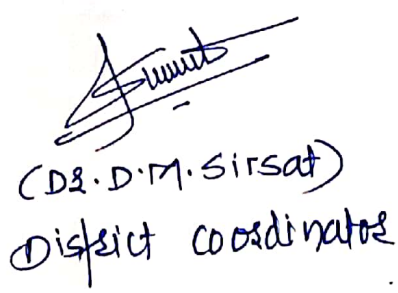 (Dr. D.M. Sirsat)
District coordinator